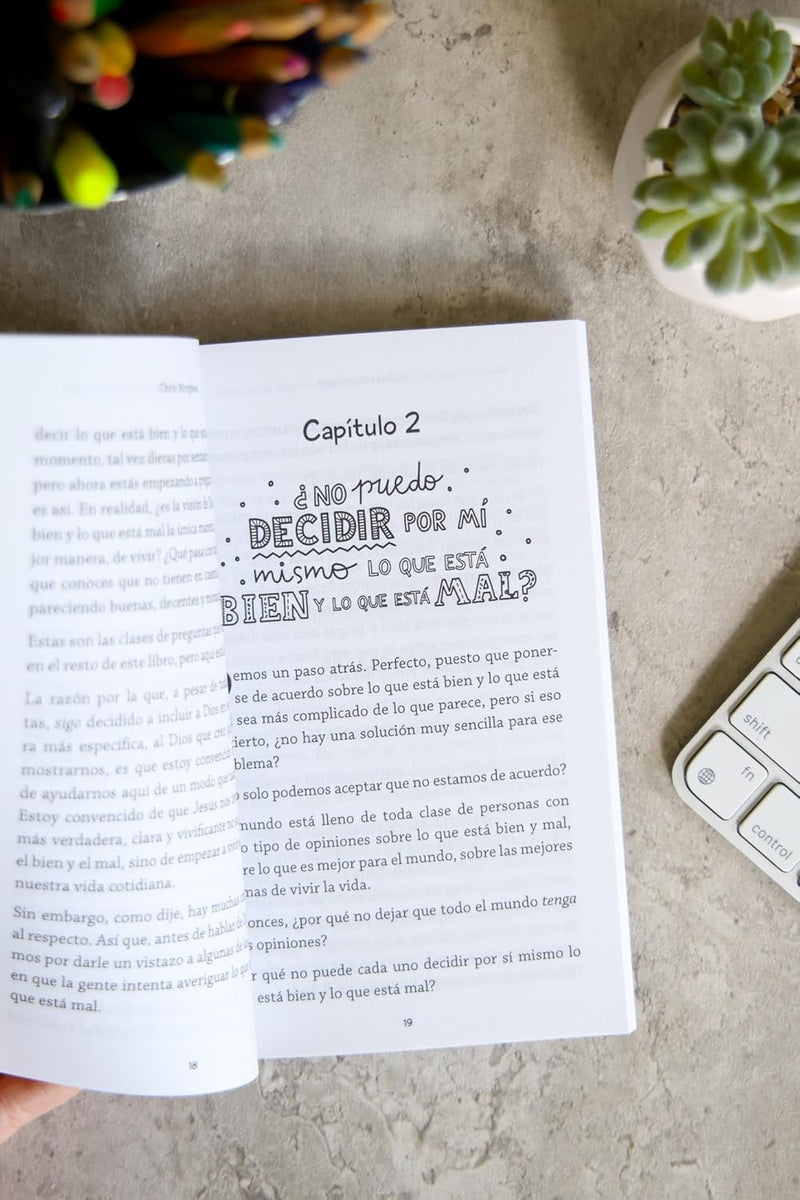 decir lo que está bien y lo que
momento, tal vez dieras por
pero ahora estás empezando a
es así. En realidad, ¿es la visión de
bien y lo que está mal la única
jor manera, de vivir? ¿Qué pasa con
que conoces que no tienen en
pareciendo buenas, decentes y
Estas son las clases de preguntas
en el resto de este libro, pero aquí
La razón por la que, a pesar de
tas, sigo decidido a incluir a Dios en
ra más específica, al Dios que
mostrarnos, es que estoy
de ayudarnos aquí de un modo que
Estoy convencido de que Jesús nos
más verdadera, clara y vivificante
el bien y el mal, sino de empezar a
nuestra vida cotidiana.
Sin embargo, como dije, hay muchas
al respecto. Así que, antes de hablar
mos por darle un vistazo a algunas de
en que la gente intenta averiguar lo
que está mal.
18
Capítulo 2
¿NO puedo
DECIDIR POR MÍ
mismo LO QUE ESTÁ
BIEN Y LO QUE ESTÁ MAL?
emos un paso atrás. Perfecto, puesto que poner-
se de acuerdo sobre lo que está bien y lo que está
sea más complicado de lo que parece, pero si eso
ierto, ¿no hay una solución muy sencilla para ese
blema?
solo podemos aceptar que no estamos de acuerdo?
mundo está lleno de toda clase de personas con
o tipo de opiniones sobre lo que está bien y mal,
re lo que es mejor para el mundo, sobre las mejores
mas de vivir la vida.
onces, ¿por qué no dejar que todo el mundo tenga
s opiniones?
r qué no puede cada uno decidir por sí mismo lo
está bien y lo que está mal?
19
shift
fn
control